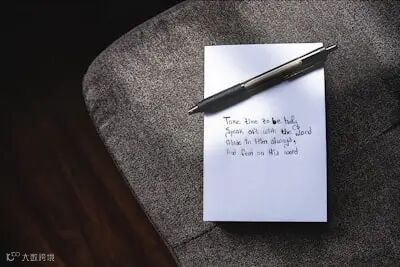 Take time to be holy
Speak oft with the
Abide in Him always,
And feed on His word
大数跨境